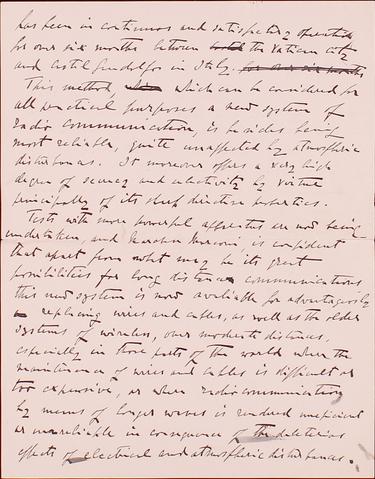 has been in continuous and satisfactory operation
for over six months between the Vatican city
and Castel Gandolfo in Italy. for over six months
This method, which can be considered for
all practical purposes a new system of
radio communication, is besides being
most reliable, quite unaffected by atmospheric
disturbances. It moreover offers a very high
degree of secrecy and selectivity by virtue
principally of its sharp directive properties.
Tests with more powerful apparatus are now being
undertaken, and Marconi, is confident
that apart from what may be its great
possibilities for long distance communications,
this new system is now available for advantageously
replacing wires and cables, as well as the older
systems of wireless, over moderate distances,
especially in those parts of the world where the
maintenance of wires and cables is difficult or
too expensive, or where radio communication
by means of longer waves is rendered inefficient
or unreliable in consequence of the deleterious
effects of electrical and atmospheric disturbances.